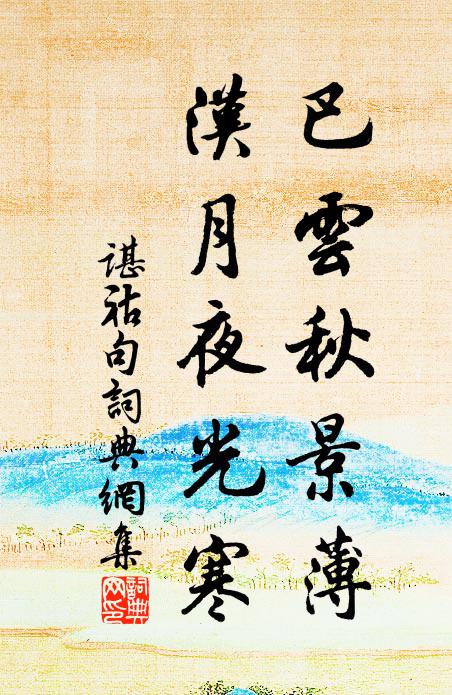 巴雲秋景薄
漢月夜光寒
諶祜句詞典網集